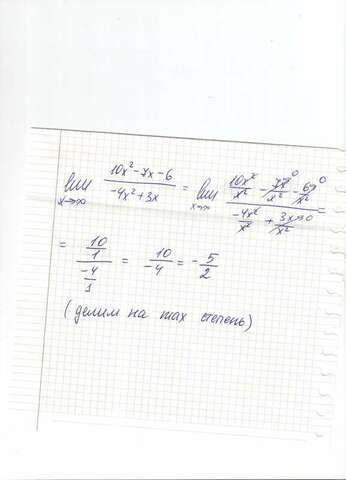 lim x→∞ (10x² - 7x - 6)/(-4x² + 3x) = lim x→∞ (10x²/x² - 7x/x²→0 - 6/x²→0)/(-4x²/x² + 3x/x²→0) =
= (10/1)/(-4/1) = 10/-4 = -5/2
(делим на max степень)